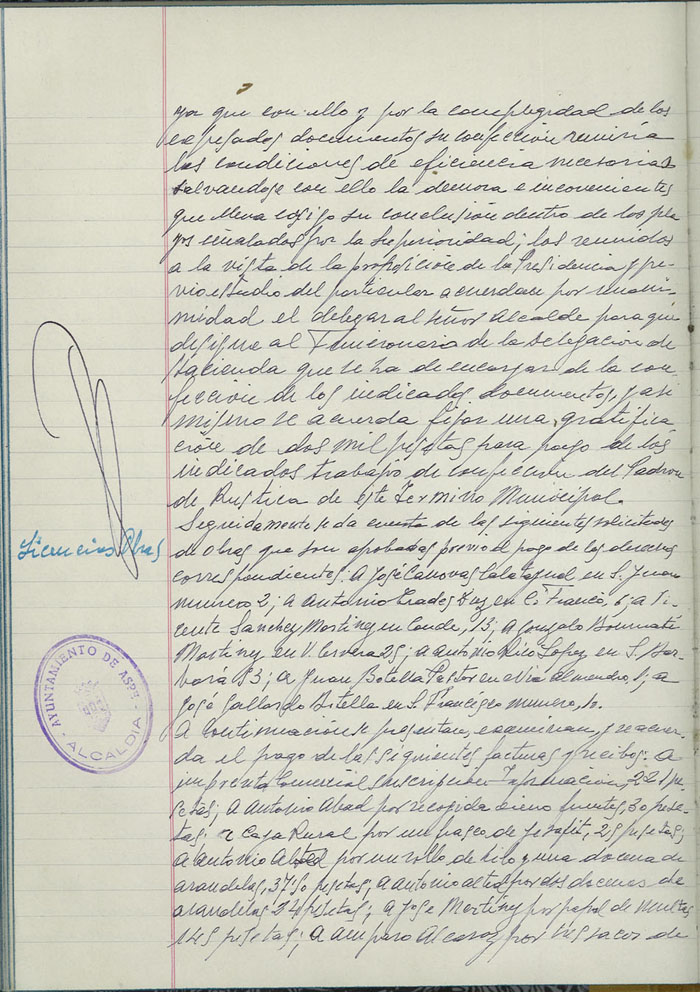 ya que con ello y por la complegidad de los
expresados documentos su confección reuniria
las condiciones de eficiencia necesarias
salvandose con ello la demora e inconvenientes
que lleva consigo su conclusión dentro de los pla-
zos señalados por la Superioridad; los reunidos
a la vista de la proposición de la Presidencia y pre-
vio estudio del particular acuerdan por unani-
midad el delegar al señor Alcalde para que
designe al Funcionario de la Delegación de
Hacienda que se ha de encargar de la con-
fección de los indicados documentos, y asi
mismo se acuerda fijar una gratifica-
ción de dos mil pesetas para pago de los
indicados trabajos de confección del Padron
de Rustica de este Termino Municipal.
Seguidamente se da cuenta de las siguientes solicitudes
Licencias Obras
de Obras que son aprobadas previo el pago de los derechos
correspondientes: A José Canovas Calatayud en S. Juan
numero 2; a Antonio Prades Diez en C. Franco, 6; a Vi-
cente Sanchez Martinez en Conde, 13; a Gonzalo Bonmatí
Martinez en V. Cervera 25; a Antonio Rico Lopez en S. Bar-
bara 53; a Juan Botella Pastor en Via almendro, 1; a
José Gallardo Botella en S. Francisco numero, 12.
AYUNTAMIENTO DE ASPE
ALCALDIA
A continuación se presentan, examinan, y se acuer-
da el pago de las siguientes facturas y recibos: A
imprenta Comercial suscripción Informacion, 221 pe-
setas; a Antonio Abad por recogida cieno fuentes, 30 pese-
tas; a Caja Rural por un frasco de 25 pesetas;
a Antonio por un rollo de hilo y una docena de
arandelas, 37'50 pesetas; a Antonio por dos docenas de
arandelas 24 pesetas; a Jose Martinez por papel de multas
tres pesetas; a Amparo Alcaraz por tres sacos de